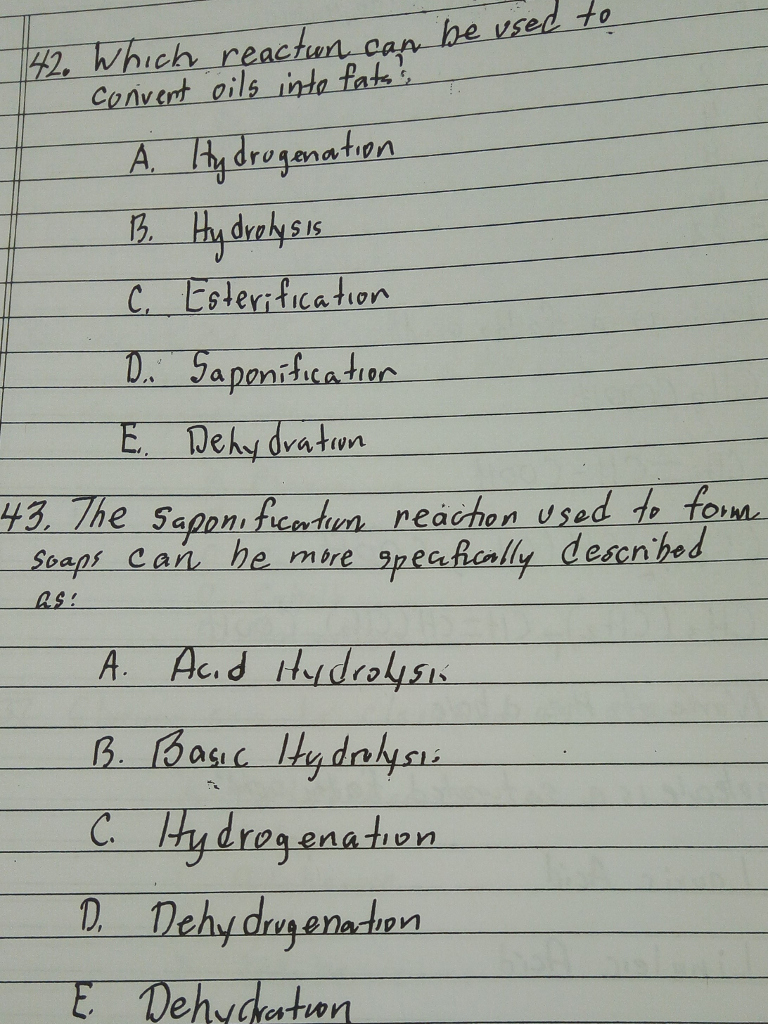 42. Which reaction can be used to
convert oils into fats?
A. Hydrogenation
B. Hydrolysis
C. Esterification
D. Saponification
E. Dehydration
43. The saponification reaction used to form
soaps can be more specifically described
as:
A. Acid Hydrolysis
B. Basic Hydrolysis
C. Hydrogenation
D. Dehydrogenation
E. Dehydration